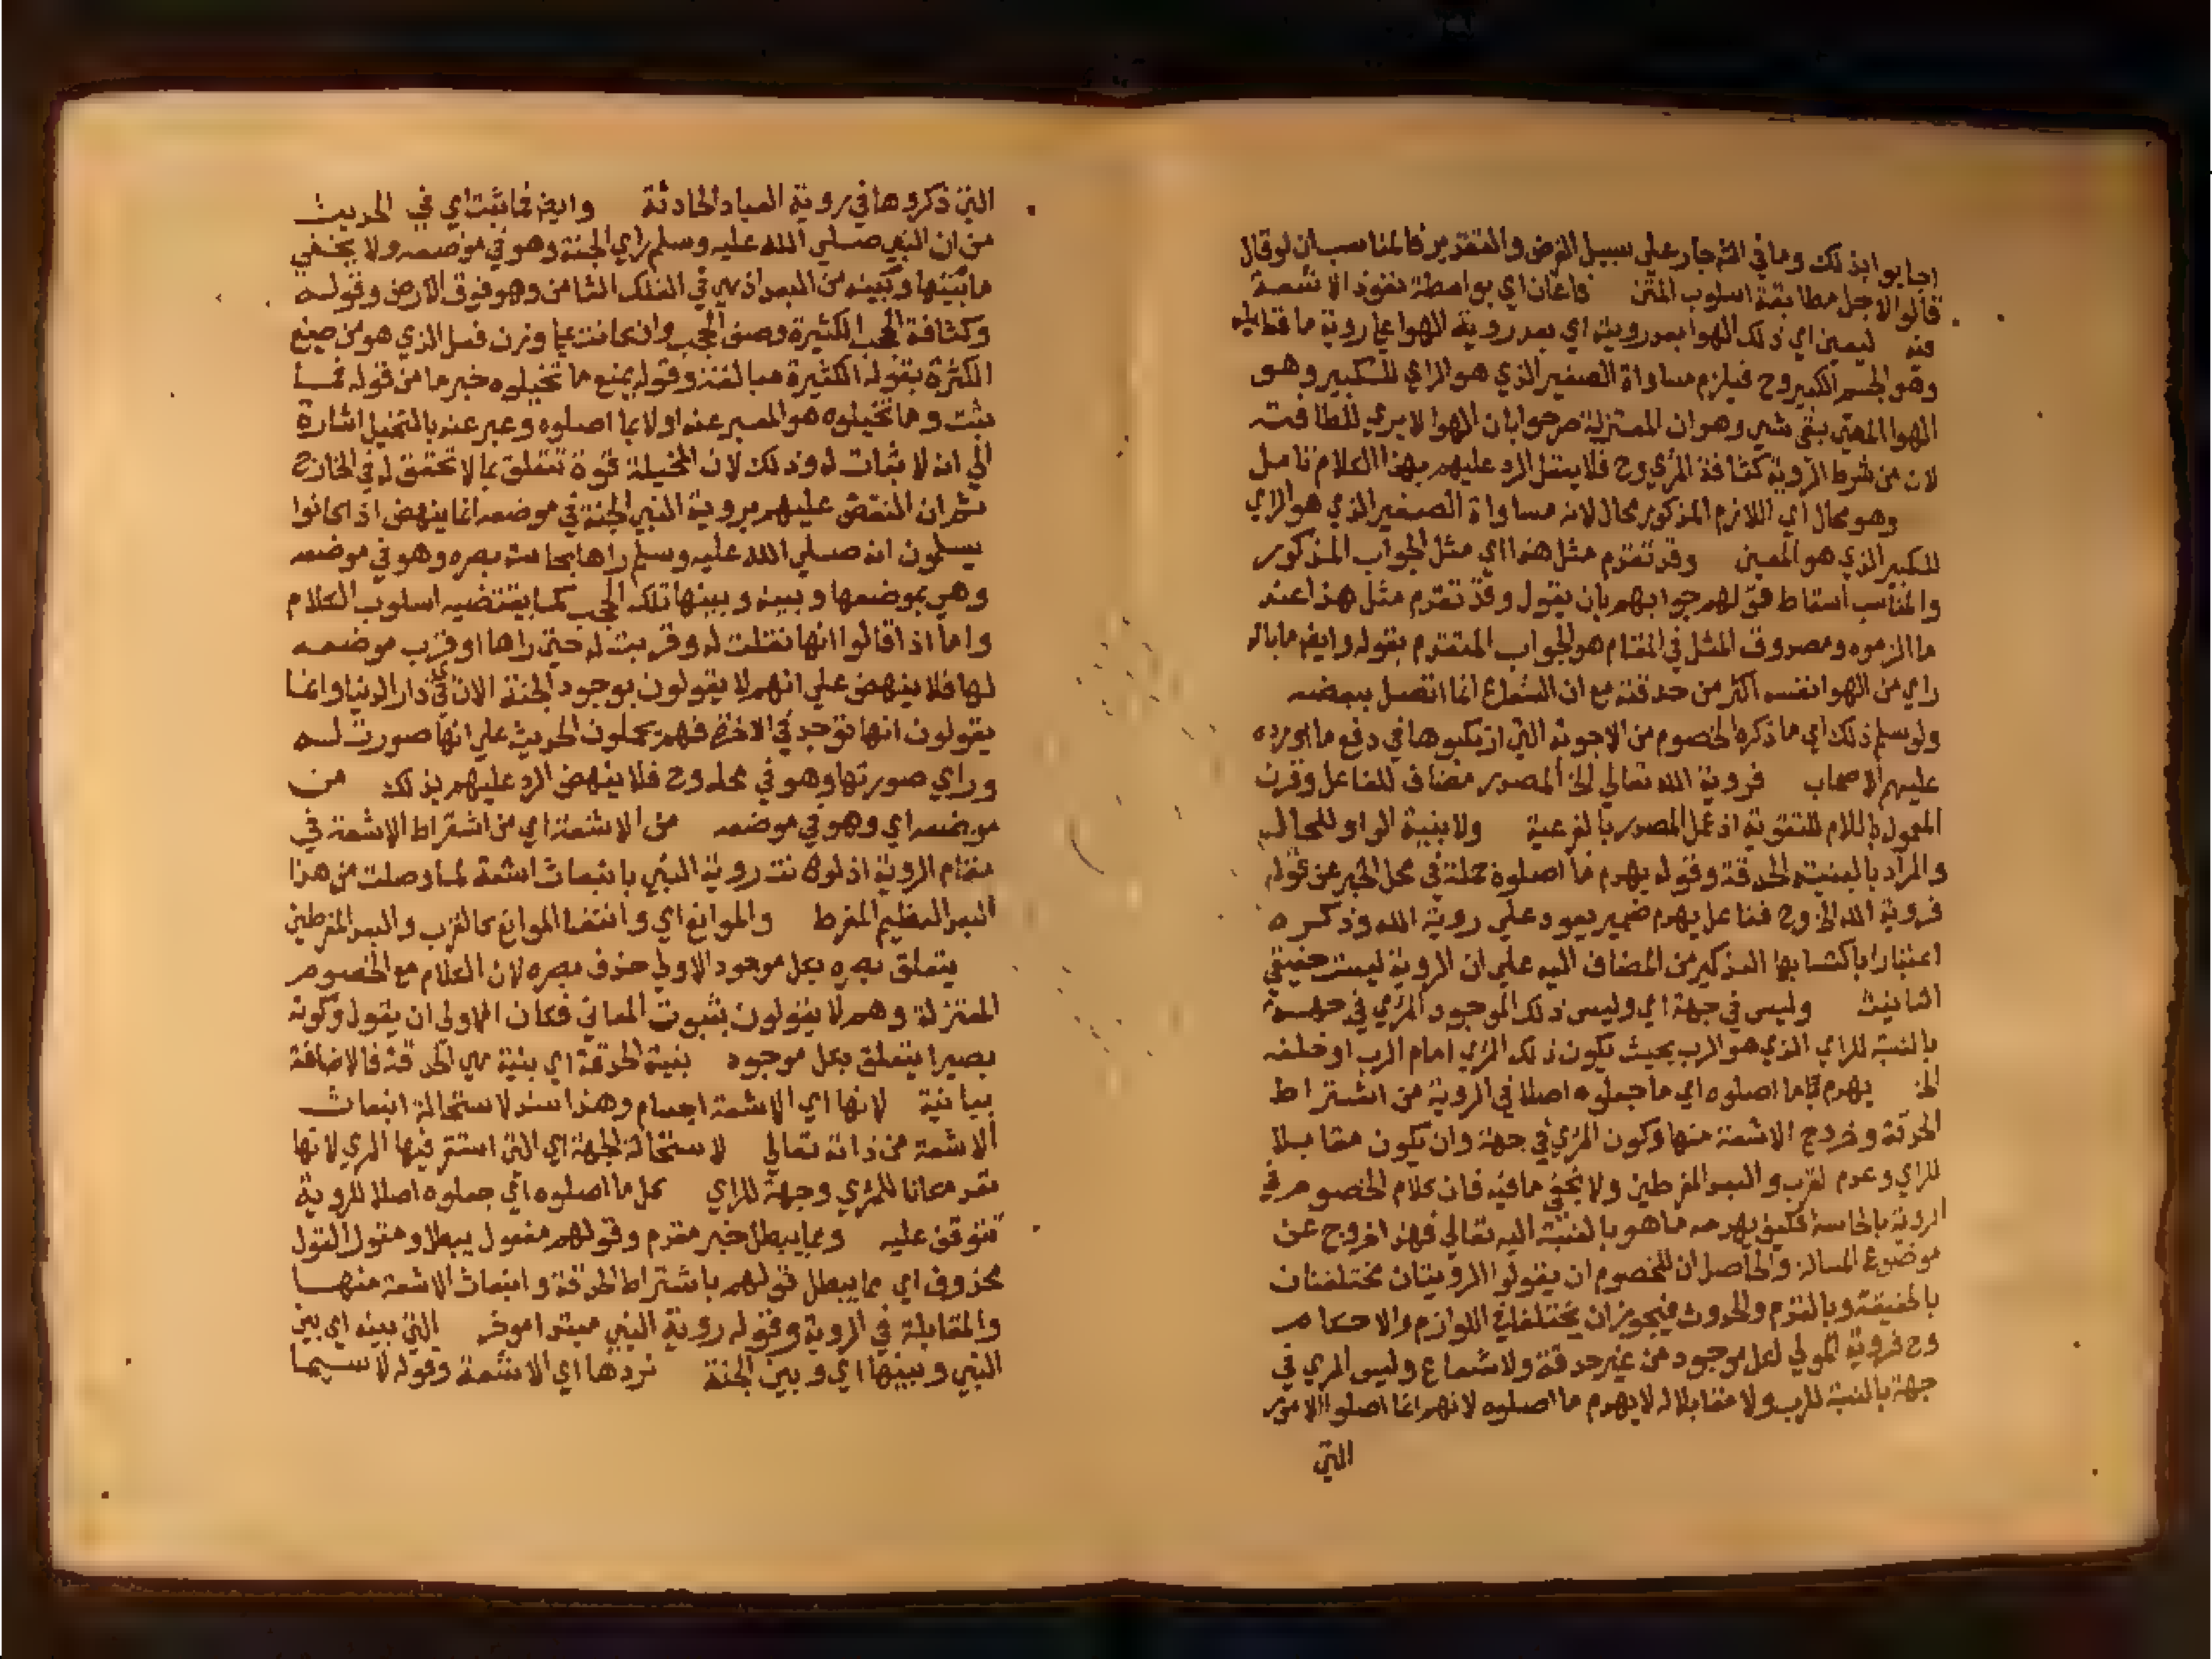 اجابوا بذلك وما في الشرح جار على سبيل الفرض والتقدير فالمناسب ان لو قال
قالوا لاجل مطابقة اسلوب المتن فاعان اي بواسطة نفوذ الاشعة
منه ليعين اي ذلك الهوا بعد رويته اي بعد روية الهوا على روية ما قابله
وهو الجسم الكبير وح فيلزم مساواة الصغير الذي هو الراي للكبير وهو
الهوا المعين بقي شي وهو ان المعتزلة صرحوا بان الهوا لا يري للطافته
لان من شرط الروية كثافة المرئي وح فلا يتنزل الرد عليهم بهذا الكلام تامل
وهو محال اي اللازم المذكور محال لانه مساواة الصغير الذي هو الراي
للكبير الذي هو المعين وقد تقدم مثل هذا اي مثل الجواب المذكور
والمناسب اسقاط هو لهم جوابهم بان يقول وقد تقدم مثل هذا عند
ما الزموه ومصدوق المثل في المقام هو الجواب المتقدم بقوله وايض ما باله
راي من الهوا نفسه اكثر من حدقته مع ان الشعاع انما اتصل ببعضه
ولو سلم ذلك اي ما ذكره الخصوم من الاجوبة التي ارتكبوها في دفع ما اورده
عليهم الاصحاب فروية الله تعالي الخ المصدر مضاف للفاعل وقرن
المعمول باللام للتقوية اذ عمل المصدر بالفرعية ولا بنية الواو للحال
والمراد بالبنية الحدقة وقوله يهدم ما اصلوه جملة في محل الخبر عن قوله
فروية الله الخ وح ففاعل يهدم ضمير يعود علي روية الله وذكره
اعتبارا باكتسابها التذكير من المضاف اليه علي ان الروية ليست حقيقي
التانيث وليس في جهة اي وليس ذلك الموجود المرئي في جهة
بالنسبة للراي الذي هو الرب بحيث يكون ذلك المرئي امام الرب او خلفه
الخ يهدم كلما اصلوه اي ما جعلوه اصلا في الروية من اشتراط
الحدقة وخروج الاشعة منها وكون المرئي في جهة وان يكون مقابلا
للراي وعدم القرب والبعد المفرطين ولا يخفى ما فيه فان كلام الخصوم في
الروية بالحاسة فكيف يهدمه ما هو بالنسبة اليه تعالي فهذا خروج عن
موضوع المسالة والحاصل ان للخصوم ان يقولوا الرويتان مختلفتان
بالحقيقة وبالقدم والحدوث فيجوز ان يختلفا في اللوازم والاحكام
وح فروية المولي لكل موجود من غير حدقة ولا شعاع وليس المري في
جهة بالنسبة للرب ولا مقابلا له لا يهدم ما اصلوه لانهم انما اصلوا الامور
التي
التي ذكروها في روية العباد الحادثة وايض فما ثبت اي في الحديث
من ان النبي صلي الله عليه وسلم راي الجنة وهو في موضعه ولا يخفي
ما بينها وبينه من البعد اذ هي في الفلك الثامن وهو فوق الارض وقوله
وكثافة الحجب الكثيرة وصف الحجب وان كانت على وزن فعل الذي هو من صيغ
الكثرة بقوله الكثيرة مبالغة وقوله يمنع ما تخيلوه خبر ما من قوله فما
ثبت وما تخيلوه هو المعبر عنه اولا بما اصلوه وعبر عنه بالتخيل اشارة
الي انه لا ثبات له وذلك لان المخيلة قوة تتعلق بما لا تحقق له في الخارج
ثم ان النقض عليهم بروية النبي الجنة في موضعه انما ينهض اذا كانوا
يسلمون انه صلي الله عليه وسلم راها بحاسة بصره وهو في موضعه
وهي بموضعها وبينه وبينها تلك الحجب كما يقتضيه اسلوب الكلام
واما اذا قالوا انها نقلت له وقربت له حتي راها او قرب موضعه
لها فلا ينهض علي انهم لا يقولون بوجود الجنة الان في دار الدنيا وانما
يقولون انها توجد في الاخرة فهم يحملون الحديث علي انها صورت له
وراي صورتها وهو في محله وح فلا ينهض الرد عليهم بذلك من
موضعه اي وهو في موضعه من الاشعة اي من اشتراط الاشعة في
مقام الروية اذ لو كانت روية النبي بانبعاث اشعة لما وصلت من هذا
البعد العظيم المفرط والموانع اي وانتفا الموانع كالقرب والبعد المفرطين
يتعلق بصره بكل موجود الاولي حذف بصره لان الكلام مع الخصوم
المعتزلة وهم لا يقولون بثبوت المعاني فكان الاولى ان يقول وكونه
بصيرا يتعلق بكل موجود بنية الحدقة اي بنية هي الحدقة فالاضافة
بيانية لانها اي الاشعة اجسام وهذا سند لاستحالة انبعاث
الاشعة من ذاته تعالي لاستحالة الجهة اي التي استقر فيها المري لانها
تعد مكانا للمرئي وجهة للراي كل ما اصلوه اي جعلوه اصلا للروية
تتوقف عليه ومما يبطل خبر مقدم وقولهم مفعول يبطل ومقول القول
محذوف اي مما يبطل قولهم باشتراط الحدقة وانبعاث الاشعة منها
والمقابلة في الروية وقوله روية النبي مبتدا موخر التي بينه اي بين
النبي وبينها اي وبين الجنة تردها اي الاشعة وقوله لا سيما